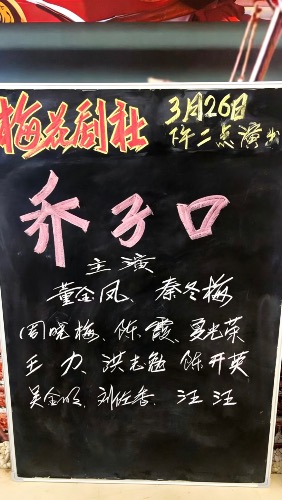 梅花剧社
3月26日
下午二点演出
乔子口
主演
董金凤、秦冬梅
周晓梅、陈霞、夏光荣
王力、洪志勉 陈开英
吴金明、刘任香、汪汪